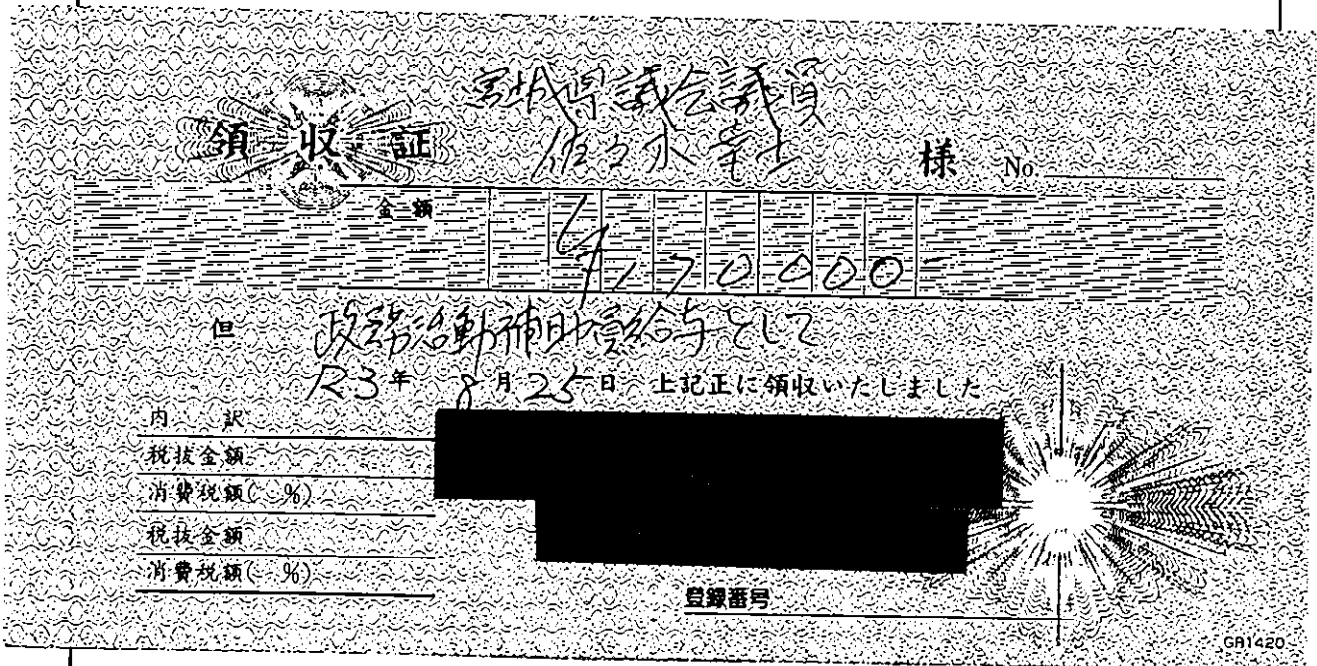 宮城県議会議員
領収証 佐々木幸士 様 No.
金額 ¥170,000-
但 政務活動補助員給与として
R3年 8月25日 上記正に領収いたしました
内訳
税抜金額
消費税額( %)
税抜金額
消費税額( %)
登録番号
GR1420